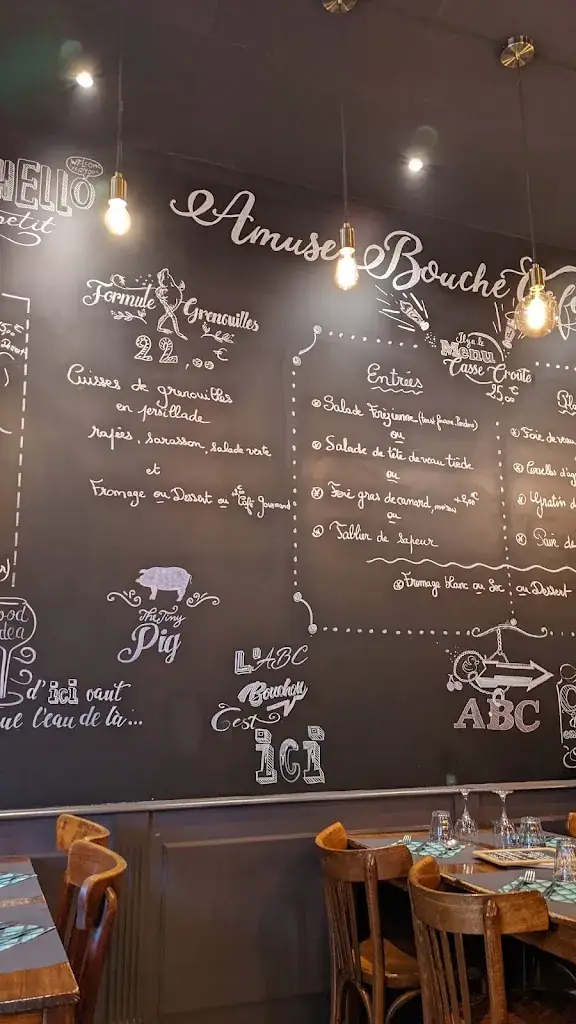 HELLO
WELCOME
petit
Amuse Bouche
Formule Grenouilles
22,00 €
Cuisses de grenouilles
en persillade
rapées, sarasson, salade verte
et
Fromage ou Dessert ou Café Gourmand
Menu
Casse Croûte
25,00
Entrées
Salade Forézienne
ou
Salade de tête de veau tiède
ou
Foie gras de canard, maison +2,00€
ou
Tablier de Sapeur
Foie de veau
Gratin d
Pavé de
Fromage blanc ou Sec ou Dessert
The Tiny
Pig
L'ABC
Bouchon
C'est
ici
ABC
d'ici vaut
que l'eau de là...